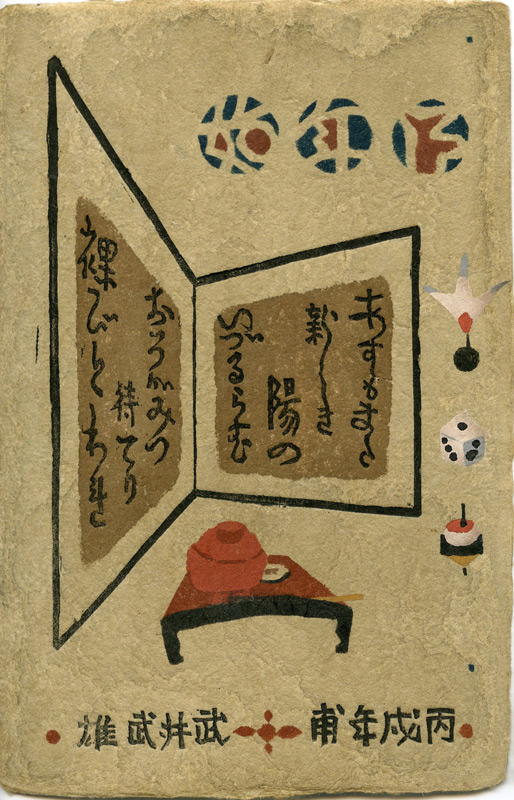 あすもまた
新しき
陽の
いづるらむ
おろがみつ
待てり
裸びとわれ
丙戌年甫 武井武雄